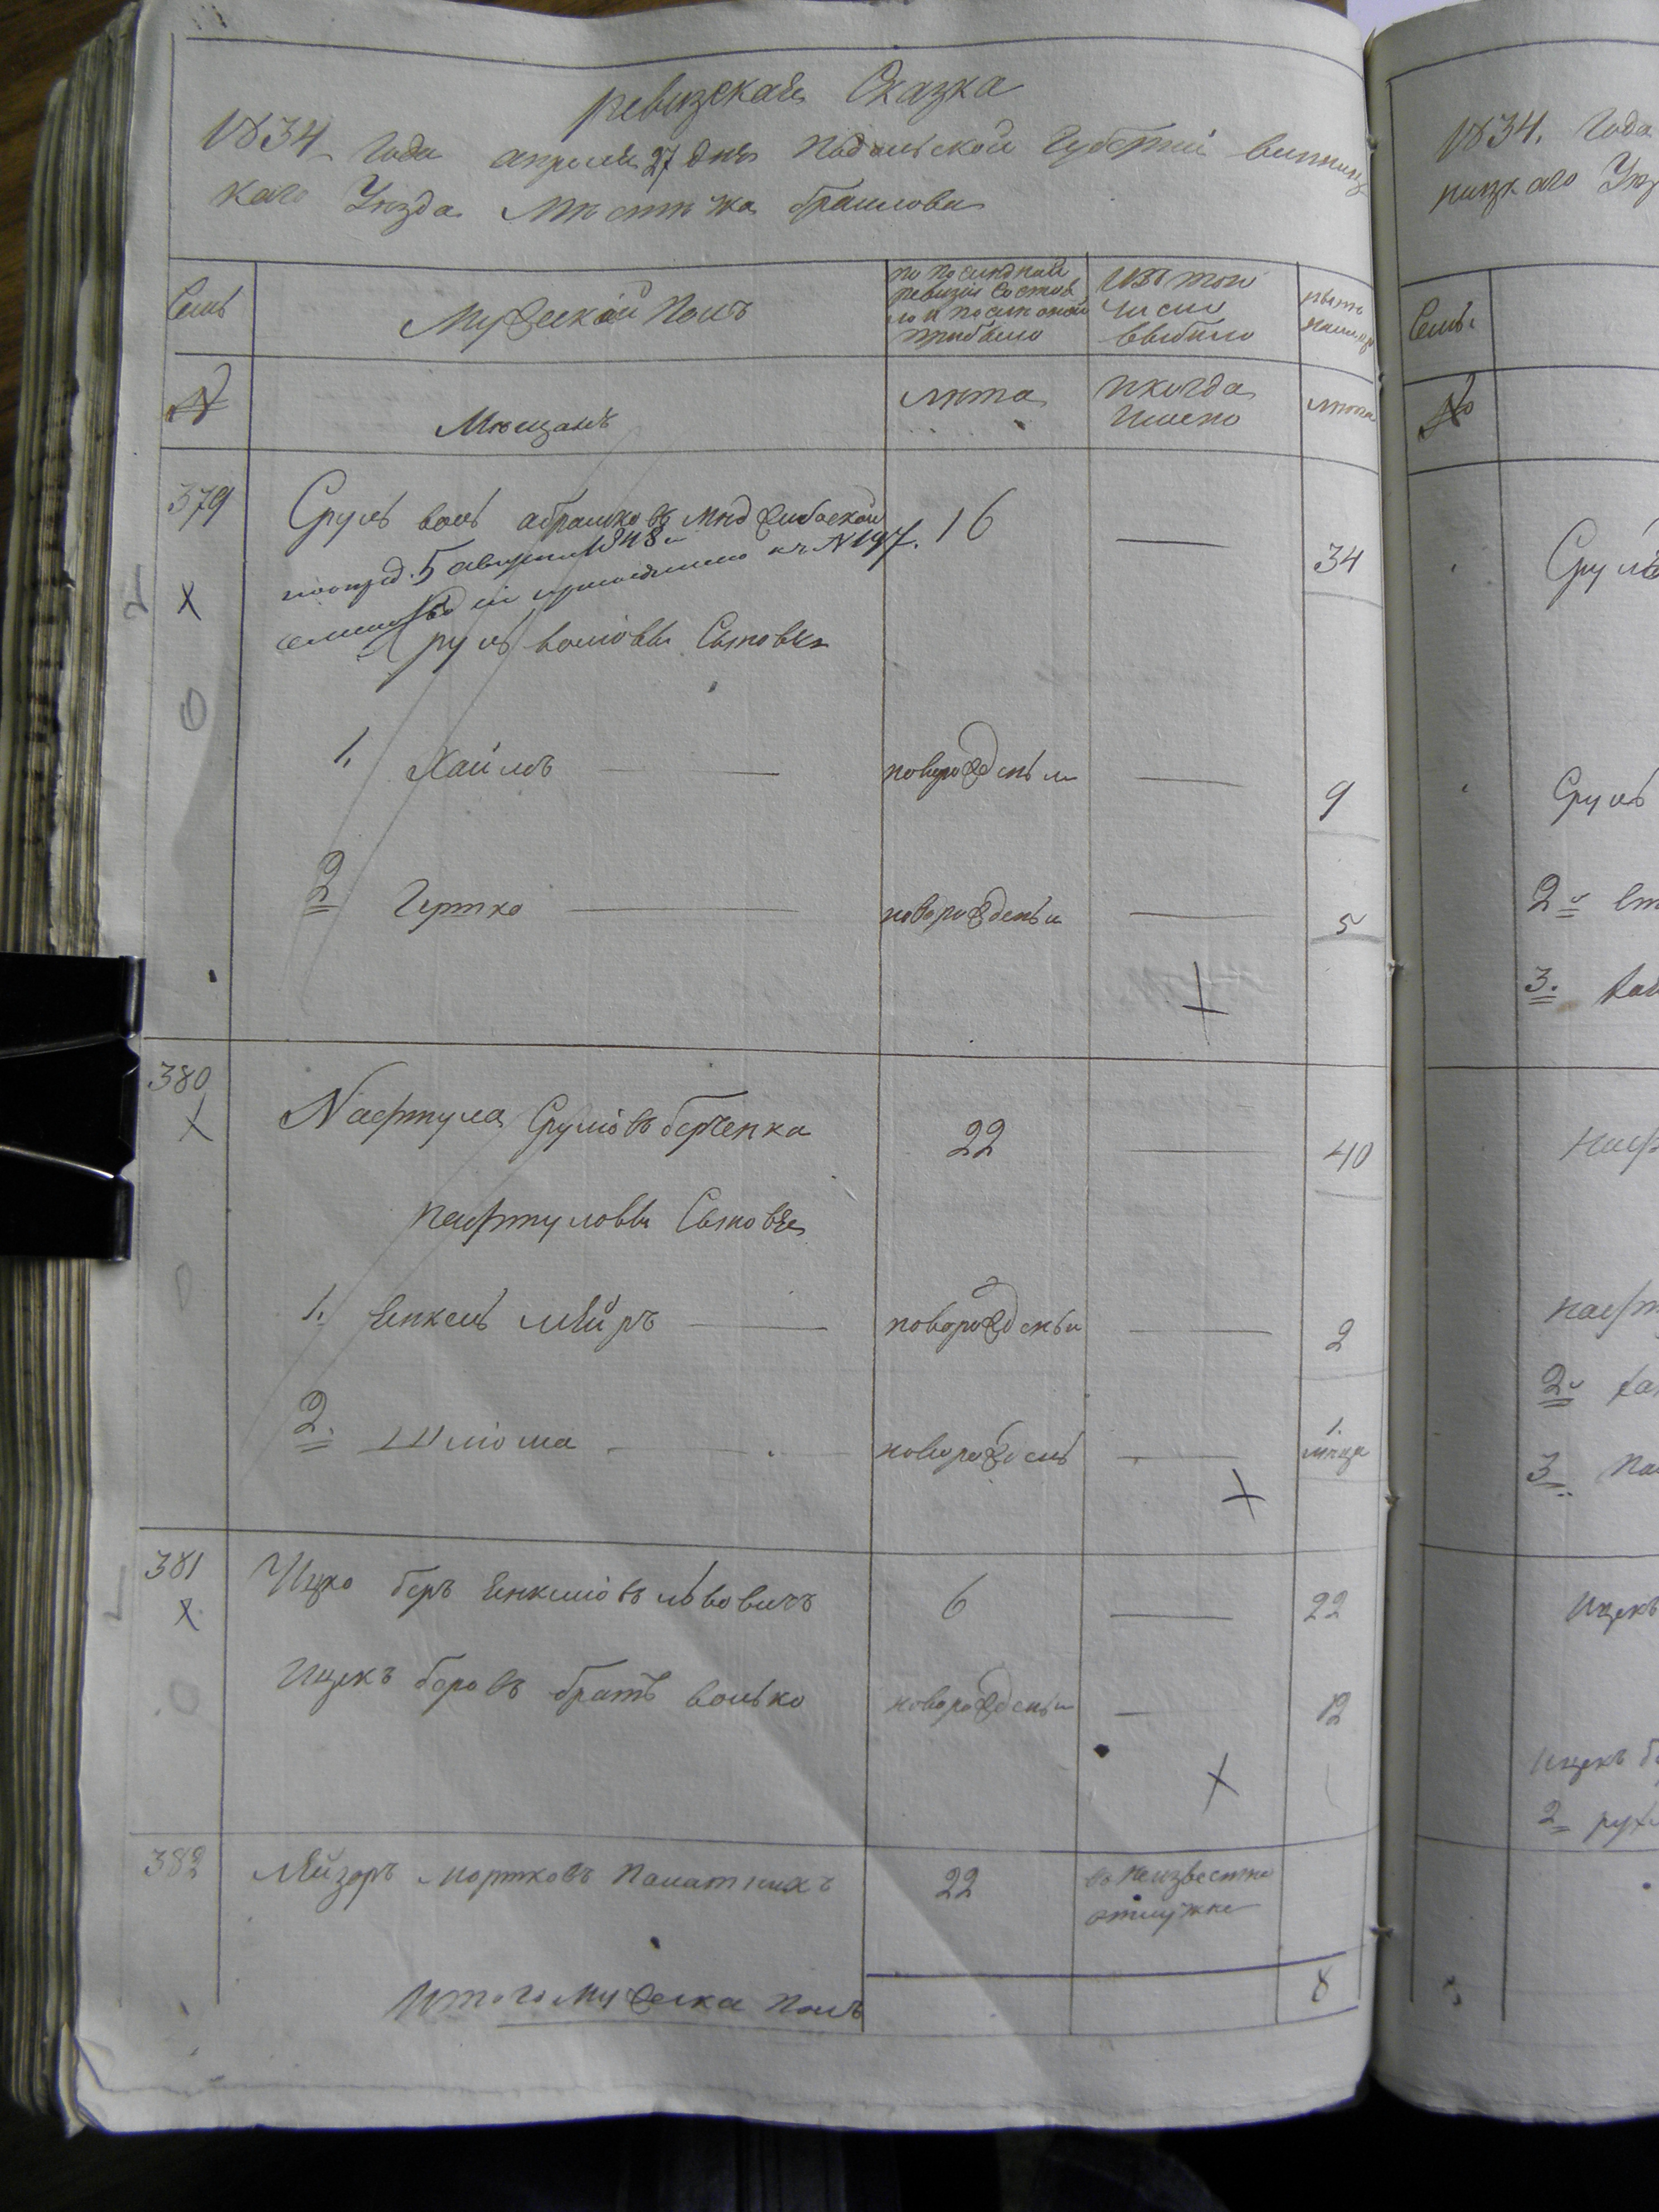 ревизская Сказка
1834 Года апреля 27 дня Подольской Губернии винниц
каго Уезда Местечка браилова
Семьи
Мужеский Полъ
по последней
ревизии состоя
ло и после оной
прибыло
Изъ того
числа
выбыло
ныне
налицо
№
Мещанъ
лета
и когда
имено
лета
379
Сруль воль абрамковъ Меджибоской
16
34
5 августа 1848
къ N 197.
Срул воловы Сыновья
1. Хаймъ
новорожденый
9
2 Гершко
новорожденый
5
380
Нафтула Срулiовъ берченка
22
40
нафтуловы Сыновья
1. Енкель мейръ
новорожденый
2
2. Шлiома
новорожден
1.
месяца
381
Ицко беръ Енкелiовъ львовичъ
6
22
Ицекъ беровъ братъ волько
новорожденый
12
382
Лейзоръ мортковъ Палатникъ
22
в неизвестной
отлучке
Итого мужеска Полъ
8
1834. Года
ницкаго Уез
Семьи
№
Сруль
Сруль
2
3.
наф
нафт
2
3
Ицекъ
Ицекъ бе
2